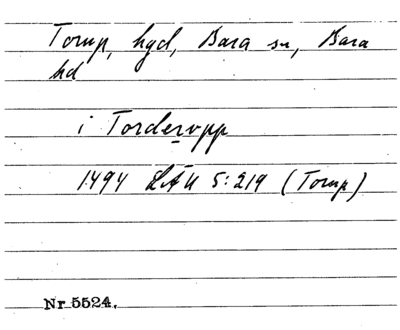 Torup, hgd, Bara sn, Bara
hd
i Torderopp
1494 LÄU 5:219 (Torup)
Nr 5524.